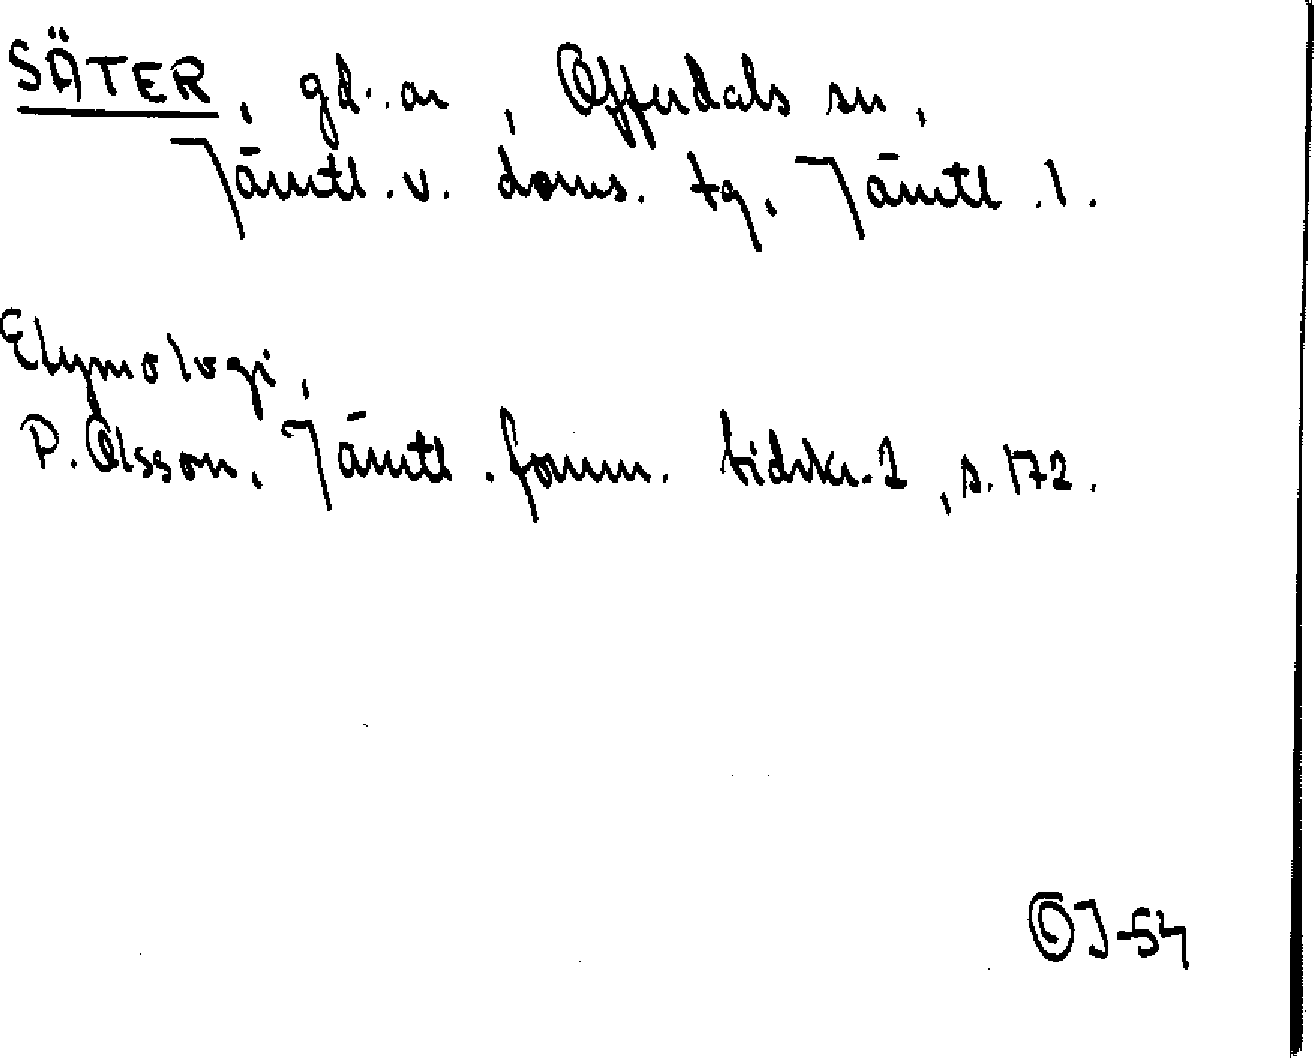 SÄTER, gd.ar, Offerdals sn,
Jämtl.v. doms. tg. Jämtl.l.
Etymologi,
P. Olsson. Jämtl. fornm. tidskr. 1, s. 172.
OJ-54